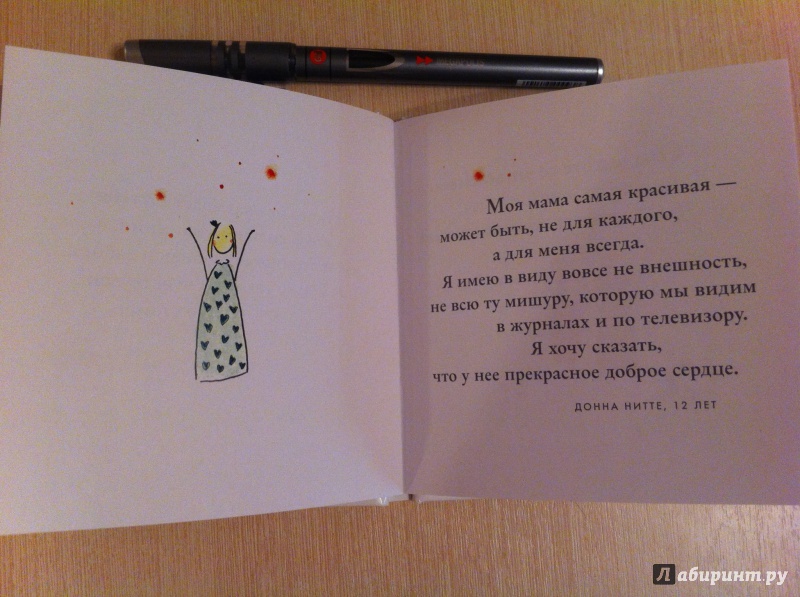 Моя мама самая красивая —
может быть, не для каждого,
а для меня всегда.
Я имею в виду вовсе не внешность,
не всю ту мишуру, которую мы видим
в журналах и по телевизору.
Я хочу сказать,
что у нее прекрасное доброе сердце.
ДОННА НИТТЕ, 12 ЛЕТ
Лабиринт.ру